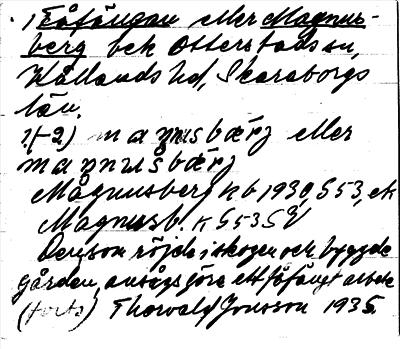 1) Fåfängan eller Magnus-
berg beb Otterstads sn,
Kållands hd, Skaraborgs
län.
1(+2) maŋnusbærj eller
maŋnusbærj
Magnusberg kb 1930, S 53, ek
Magnusb. K S 53 SV
Den som röjde i skogen och byggde
gården, ansågs göra ett fåfängt arbete
(forts) Thorvald Jonsson 1935.